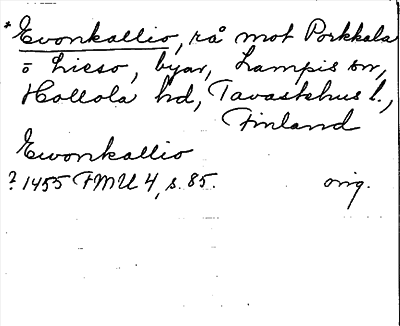 *Evonkallio, rå mot Porkkala
o Lieso, byar, Lampis sn,
Hollola hd, Tavastehus l.,
Finland
Ewonkallio
? 1455 FMU 4, s. 85. orig.